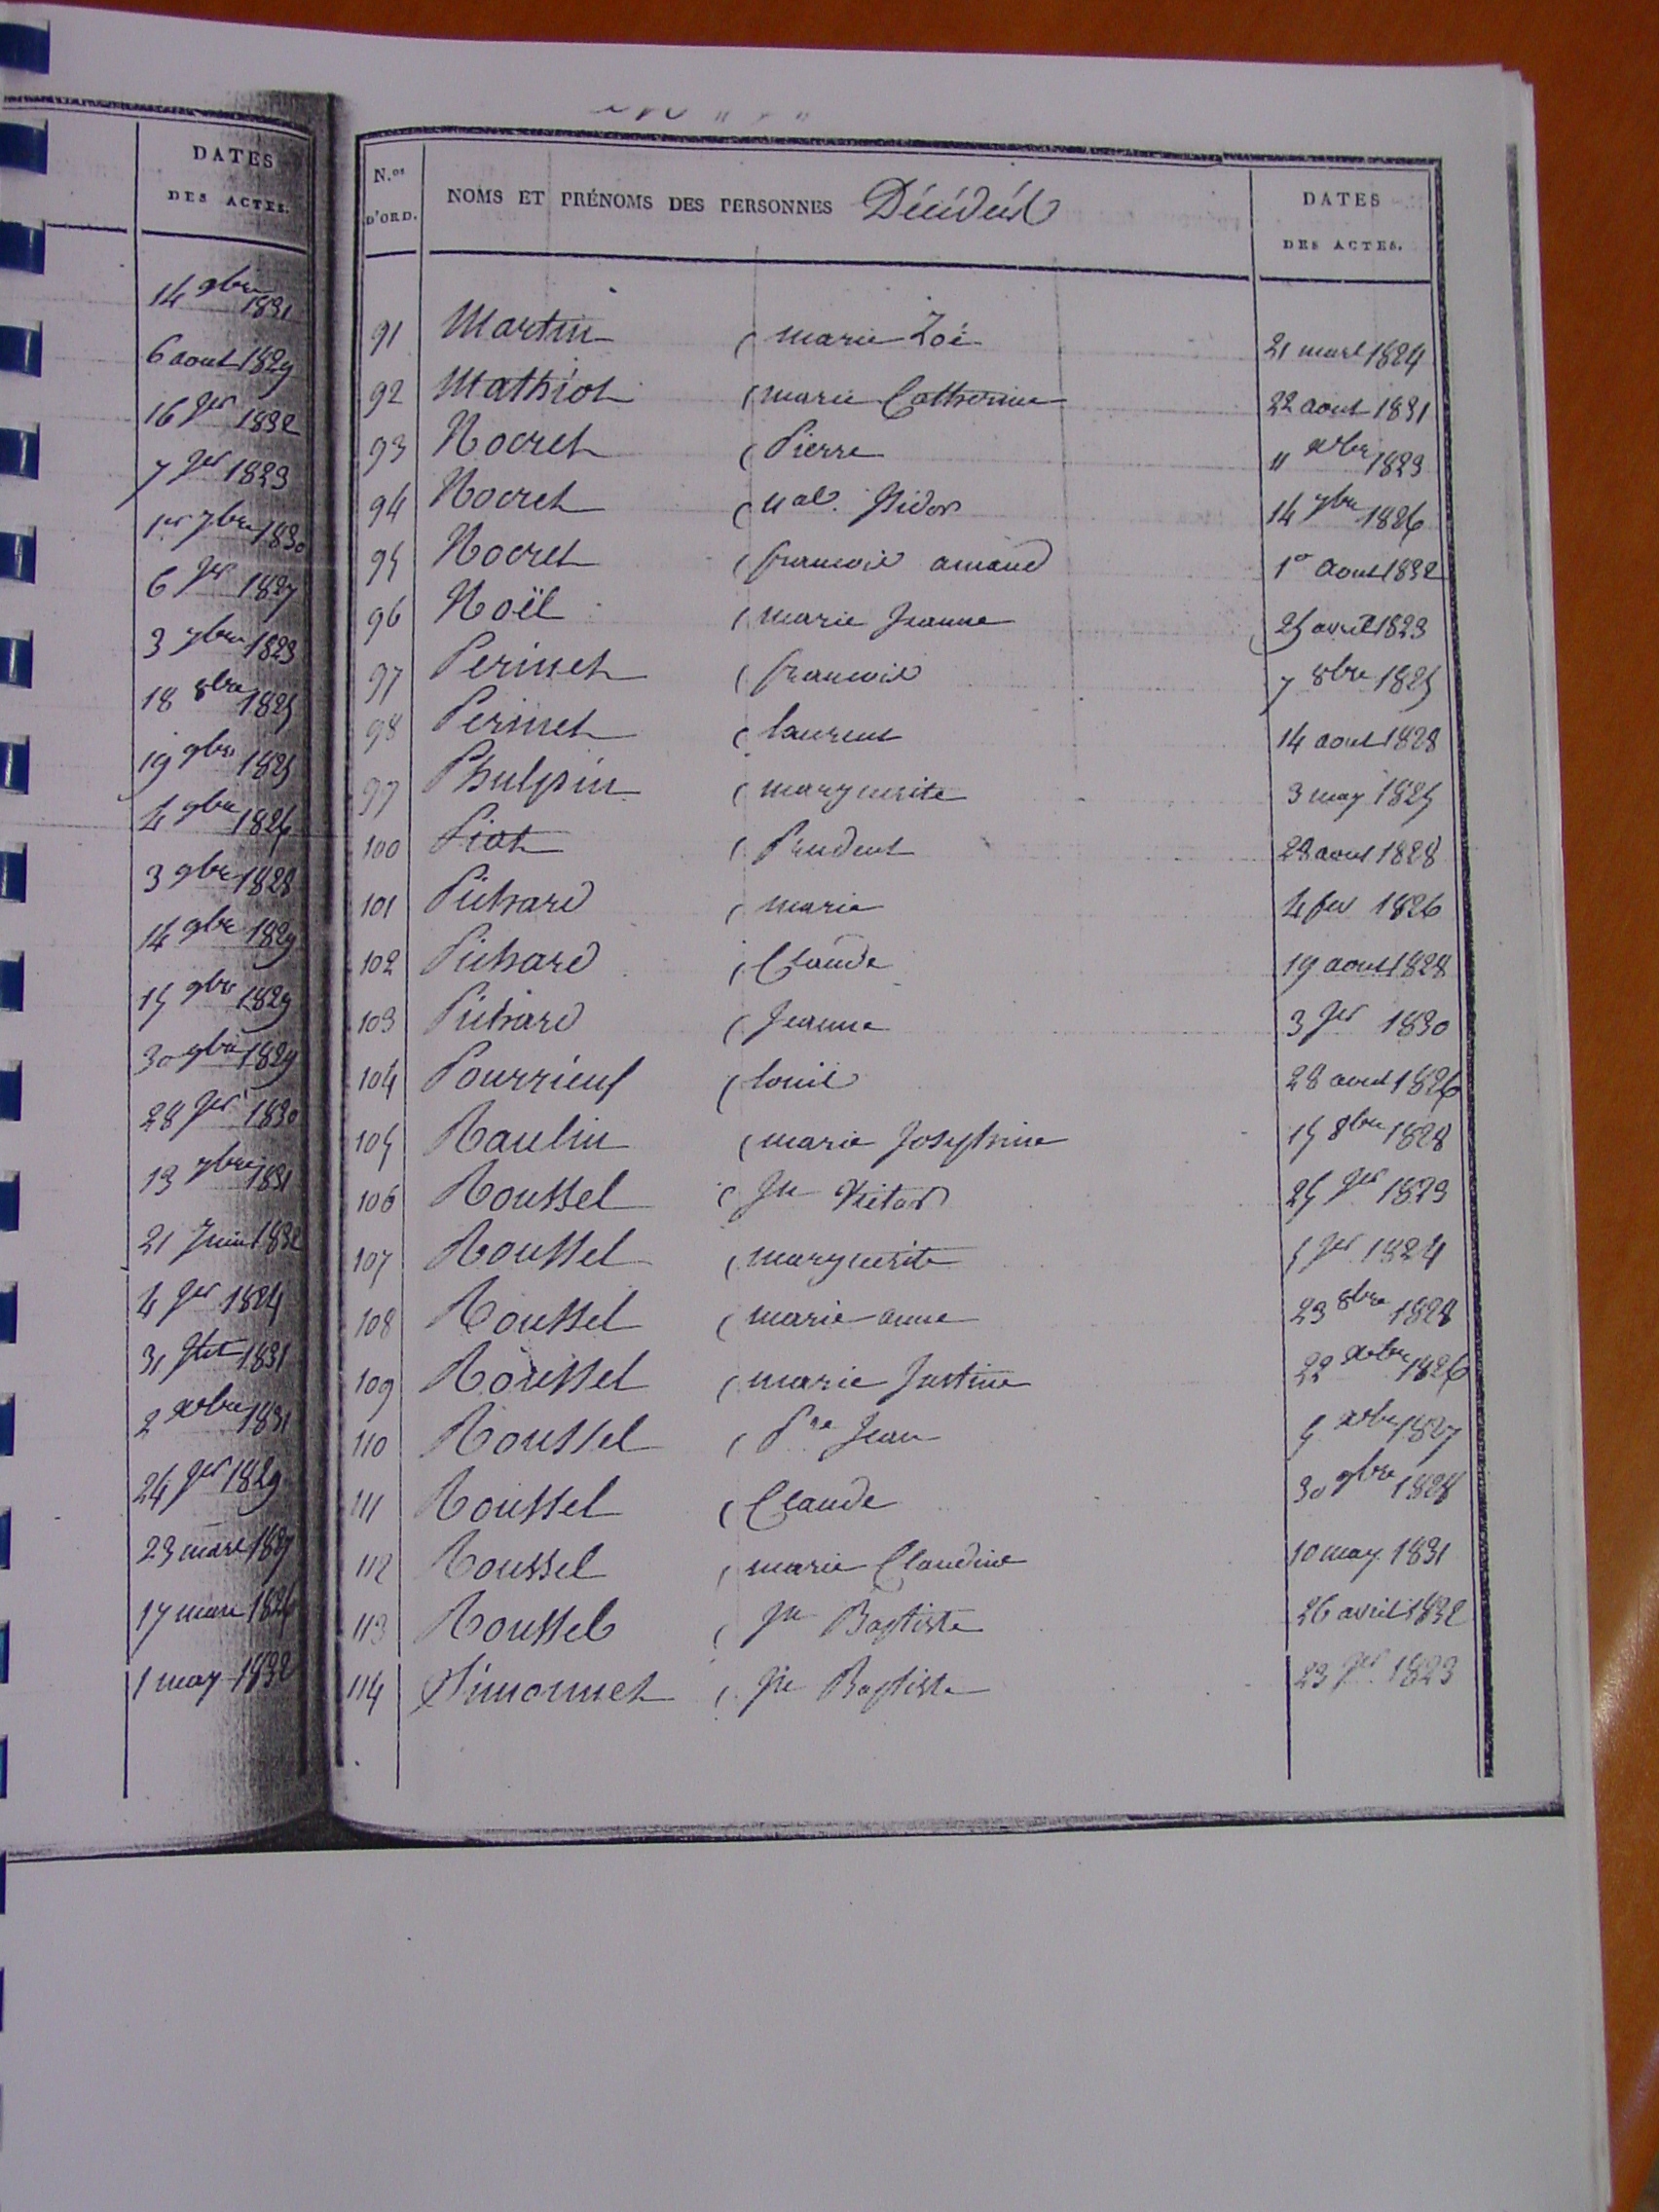 DATES
DES ACTES.
14 9bre 1831
6 aout 1829
16 Jer 1832
7 Jer 1823
1er 7bre 1830
6 Jer 1827
3 7bre 1823
18 8bre 1825
19 9bre 1825
4 9bre 1826
3 9bre 1828
14 9bre 1829
15 9bre 1829
30 9bre 1829
28 Jer 1830
13 7bre 1831
21 Juin 1832
4 Jer 1824
31 Jlet 1831
2 Xbre 1831
24 Jer 1829
23 mars
17 mars
1 may 1832
N.os D'ORD. NOMS ET PRÉNOMS DES PERSONNES Décédées DATES DES ACTES.
91 Martin ( marie Zoé 21 mars 1824
92 Mathiot ( marie Catherine 22 aout 1831
93 Nocret ( Pierre 11 Xbre 1823
94 Nocret ( Isidor 14 7bre 1826
95 Nocret ( francois amand 1er aout 1832
96 Noël ( marie Jeanne 25 avril 1823
97 Perinet ( francois 7 8bre 1825
98 Perinet ( laurent 14 aout 1828
99 Phulpin ( marguerite 3 may 1825
100 Piot ( Prudent 28 aout 1828
101 Pichard ( marie 4 fev 1826
102 Pichard ( Claude 19 aout 1828
103 Pichard ( Jeanne 3 Jer 1830
104 Pourrieux ( louis 28 1826
105 Raulin ( marie Josephine 15 8bre 1828
106 Roussel ( Jn Victor 25 Jer 1823
107 Roussel ( marguerite 5 Jer 1824
108 Roussel ( marie anne 23 8bre 1828
109 Roussel ( marie Justine 22 Xbre 1826
110 Roussel ( Pre Jean 5 Xbre 1827
111 Roussel ( Claude 30 9bre 1828
112 Roussel ( marie Claudine 10 may 1831
113 Roussel ( Jn Baptiste 26 avril 1832
114 Simonnet ( Jn Baptiste 23 Jer 1823